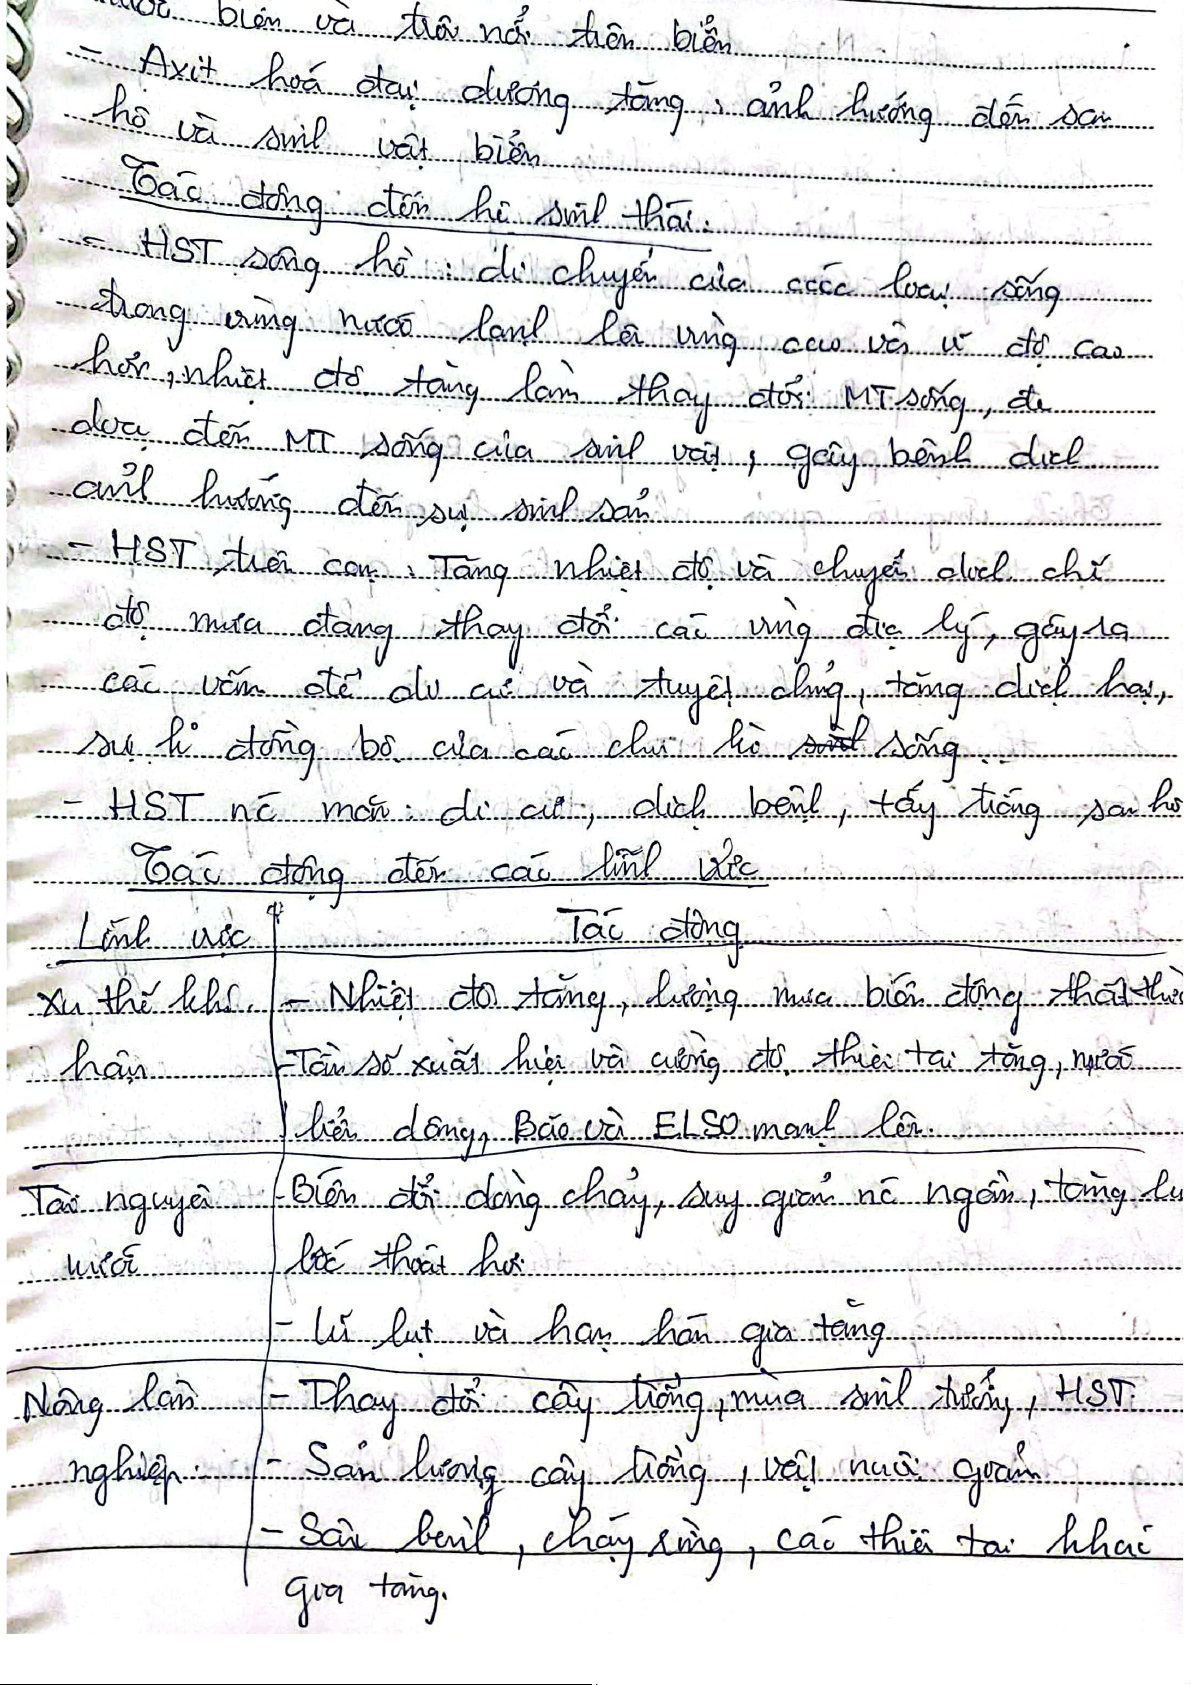 biển và trôi nổi trên biển
- Axit hoá đại dương tăng : ảnh hưởng đến san
hô và sinh vật biển
Tác động đến hệ sinh thái.
- HST sông hồ : di chuyển của các loại sống
trong vùng nước lạnh lên vùng cao và vĩ độ cao
hơn, nhiệt độ tăng làm thay đổi MT sống, đe
doạ đến MT sống của sinh vật, gây bệnh dịch
ảnh hưởng đến sự sinh sản
- HST trên cạn : Tăng nhiệt độ và chuyển dịch chế
độ mưa đang thay đổi các vùng địa lý, gây ra
các vấn đề du cư và tuyệt chủng, tăng dịch hại,
sự k đồng bộ của các chu kì sống...
- HST nc mặn : di cư, dịch bệnh, tẩy trắng san hô
Tác động đến các lĩnh vực
Lĩnh vực Tác động
Xu thế khí - Nhiệt độ tăng, lượng mưa biến động thất thường
hậu - Tần số xuất hiện và cường độ thiên tai tăng, nước
biển dâng, Bão và ELSO mạnh lên.
Tài nguyên - Biến đổi dòng chảy, suy giảm nc ngầm, tăng
nước bốc thoát hơi
- Lũ lụt và hạn hán gia tăng
Nông lâm - Thay đổi cây trồng, mùa sinh trưởng, HST
nghiệp. - Sản lượng cây trồng, vật nuôi giảm
- Sâu bệnh, cháy rừng, các thiên tai khác
gia tăng.